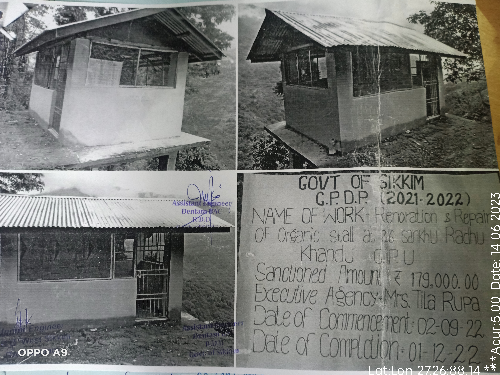 Assistant Engineer
Dentam BAC
R.D.D.
GOVT OF SIKKIM
G.P.D.P. (2021-2022)
NAME OF WORK: Renovation & Repair
of Organic stall at
Khandu G.P.U
Sanctioned Amount ₹ 179,000.00
Executive Agency- Mrs. Tila Rupa
Date of Commencement- 02-09-22
Date of Completion- 01-12-22
Assistant Engineer
OPPO A9
Lat:Lon 27.26:88.14 **Acur:5.00 Date:14.06.2023